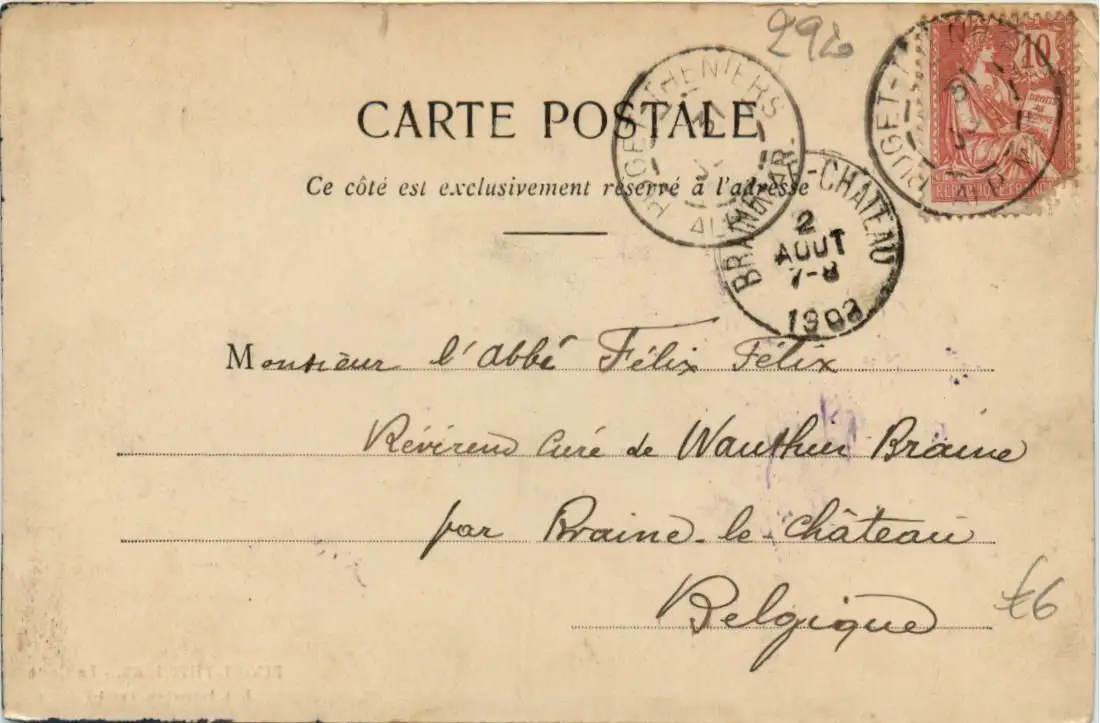 292
10
RÉPUBLIQUE FRANÇAISE
PUGET-THENIERS
CARTE POSTALE
Ce côté est exclusivement réservé à l'adresse
BRAINE-LE-CHATEAU
2
AOUT
7-8
1903
Monsieur l'abbé Félix Félix
Révérend Curé de Wauthier Braine
par Braine-le-Château
Belgique
£6